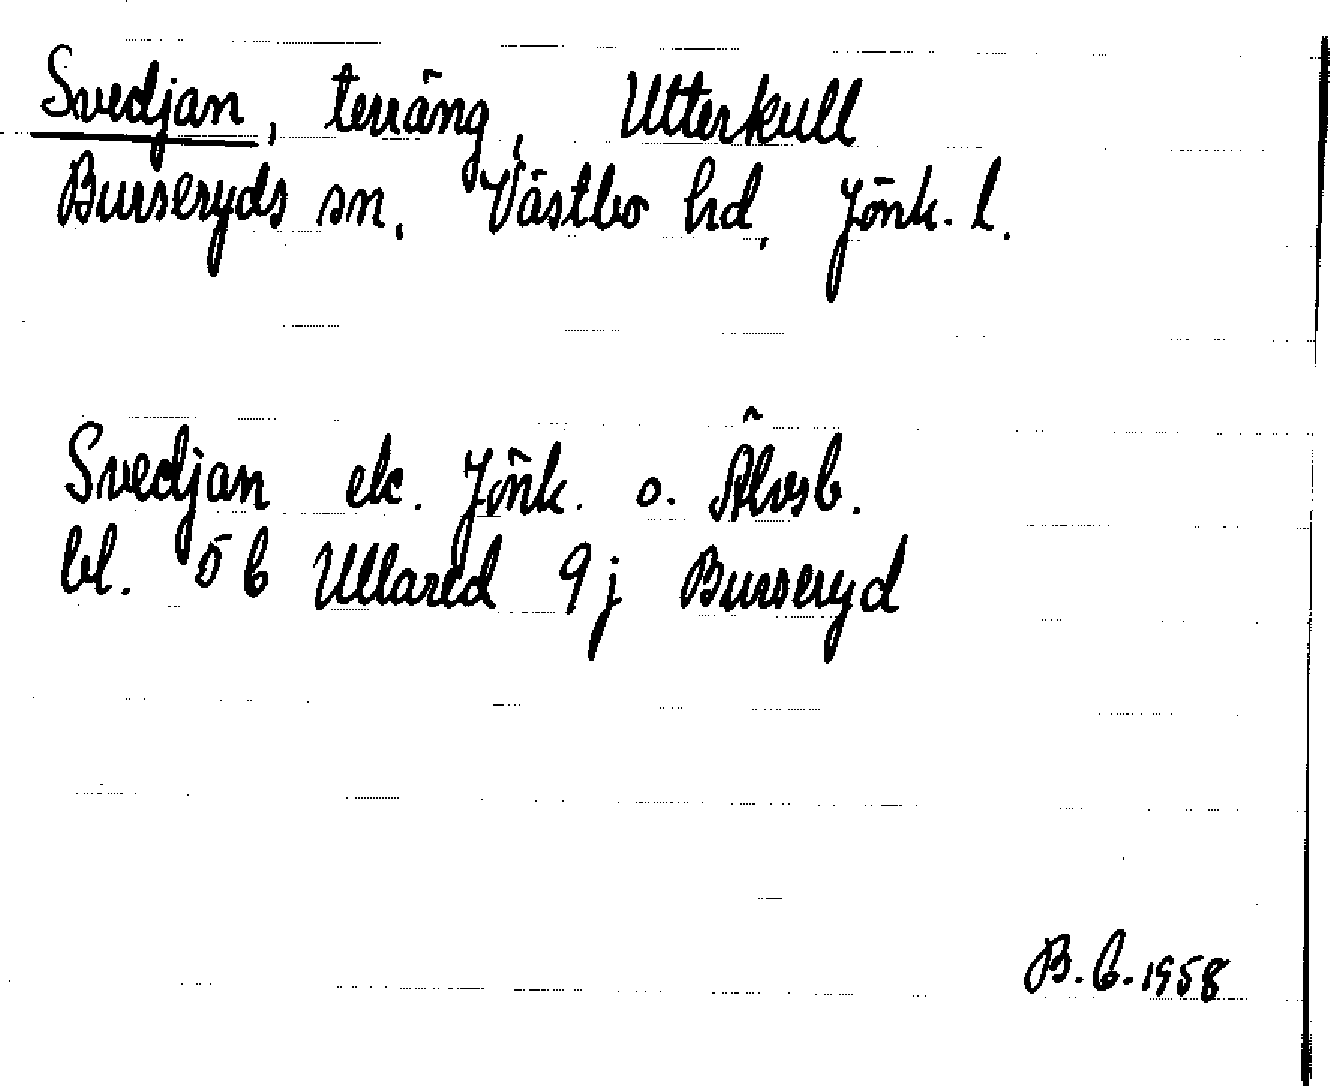 Svedjan, terräng, Utterkull
Burseryds sn, Västbo hd, Jönk. l.
Svedjan ek. Jönk. o. Älvsb.
bl. 5 6 Ullared 9 j Burseryd
B. E. 1958